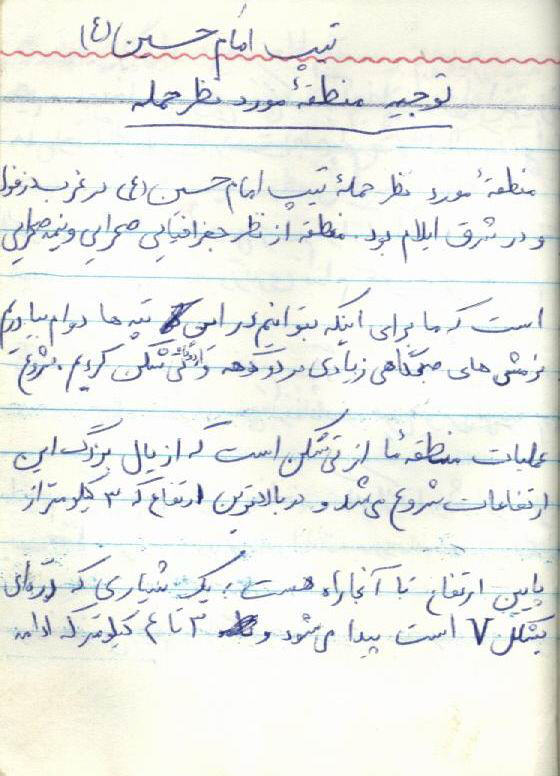 تیپ امام حسین (ع)
توجیه منطقهٔ مورد نظر حمله
منطقهٔ مورد نظر حملهٔ تیپ امام حسین (ع) در غرب دزفول
و در شرق ایلام بود. منطقه از نظر جغرافیایی صحرایی و نیمه صحرایی
است که ما برای اینکه بتوانیم در این تپه ها دوام بیاوریم
نرمش های صبحگاهی زیادی در دوکوهه و کردیم. شروع
عملیات منطقهٔ ما از است که از یال بزرگ این
ارتفاعات شروع می شد و در بالاترین ارتفاع که ۳ کیلومتر از
پایین ارتفاع تا آنجا راه هست؛ یک شیاری که درّه ای
بشکل V است پیدا می شود و ۳ تا ۴ کیلومتر که ادامه